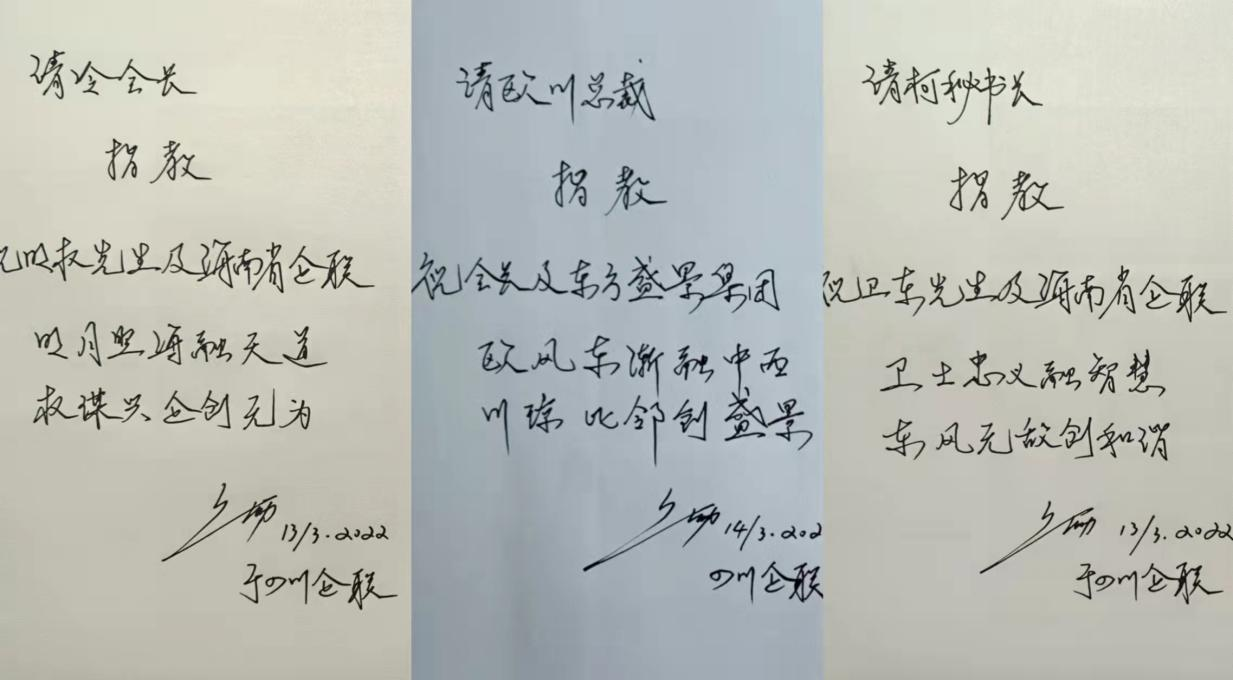 请冷会长
指教
祝明权先生及海南省企联
明月照海融天道
权谋兴企创无为
13/3.2022
于四川企联
请欧川总裁
指教
祝会长及东方盛景集团
欧风东渐融中西
川琼比邻创盛景
14/3.202
四川企联
请柯秘书长
指教
祝卫东先生及海南省企联
卫士忠义融智慧
东风无敌创和谐
13/3.2022
于四川企联